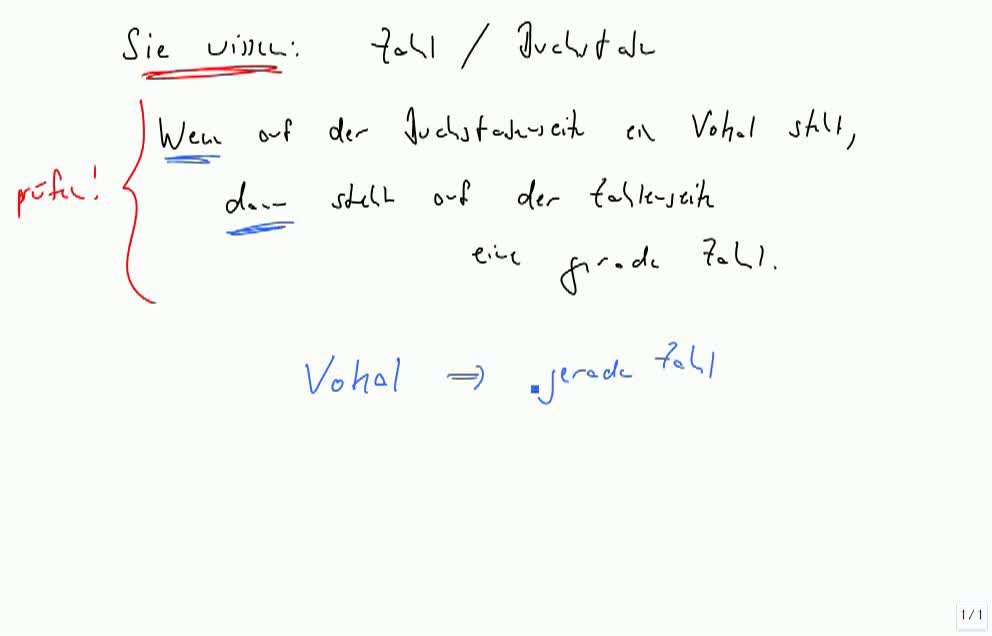 Sie wissen: Zahl / Buchstabe
Wenn auf der Buchstabenseite ein Vokal steht,
prüfen!
dann steht auf der Zahlenseite
eine gerade Zahl.
Vokal ⇒ gerade Zahl
1/1